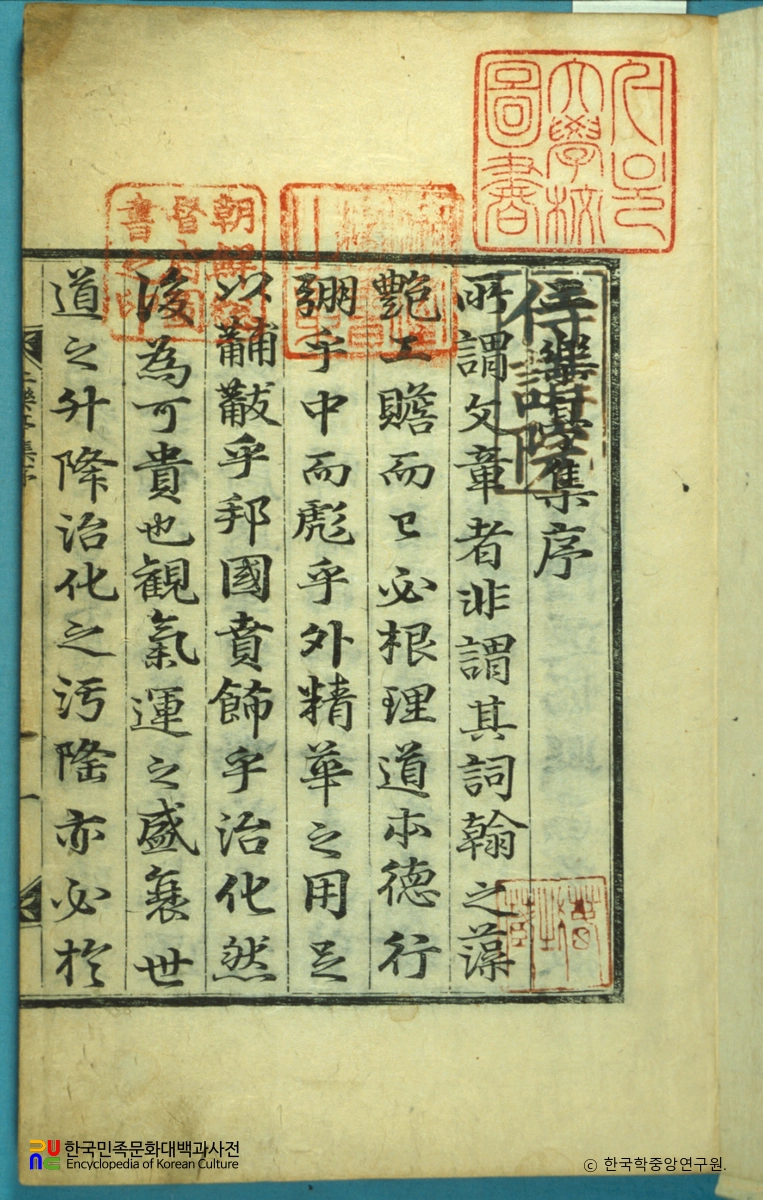 서울
大學校
圖書
朝鮮總
督府圖
書之印
二樂亭集序
所謂文章者非謂其詞翰之藻
艶工贍而已必根理道本德行
弸乎中而彪乎外精華之用足
以黼黻乎邦國賁飾乎治化然
後為可貴也觀氣運之盛衰世
道之升降治化之污隆亦必於
二樂亭集序 一
한국민족문화대백과사전
Encyclopedia of Korean Culture
ⓒ 한국학중앙연구원.